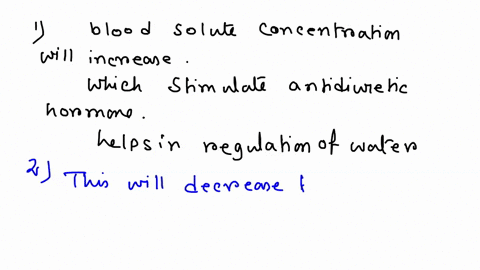 1) blood solute concentration
will increase.
which stimulate antidiuretic
hormone.
helps in regulation of water
2) This will decrease